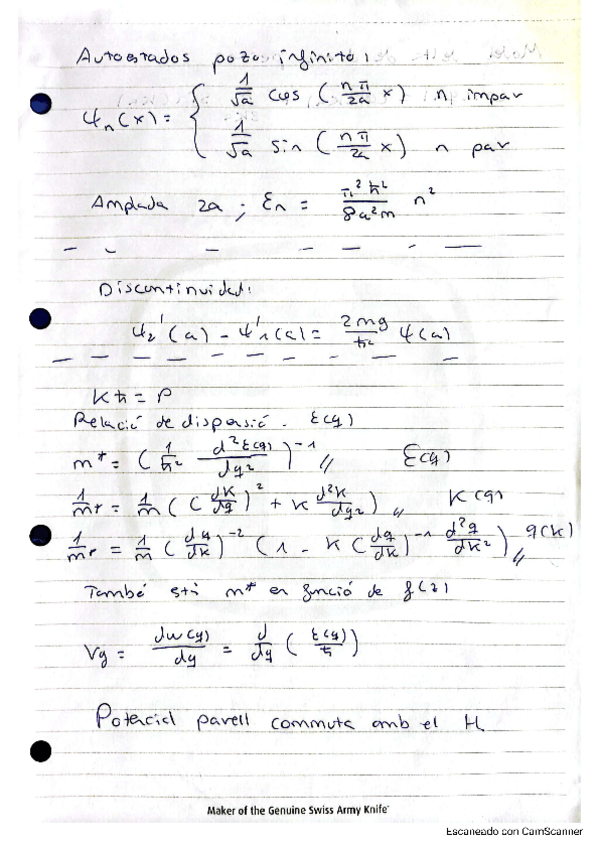 Autoestados pozo infinito:
Ψn(x) = { 1/√a cos (nπ/2a x) n impar
1/√a sin (nπ/2a x) n par
Amplada 2a ; Ɛn = π²ħ²/8a²m n²
Discontinuidad:
Ψ2'(a) - Ψ'1(a) = 2mg/ħ² Ψ(a)
Kħ = P
Relació de dispersió. Ɛ(q)
m* = (1/ħ² d²Ɛ(q)/dq²)^-1 // Ɛ(q)
1/m* = 1/m ((dK/dq)² + K d²K/dq²) // K(q)
1/m* = 1/m (dq/dK)^-2 (1 - K (dq/dK)^-1 d²q/dK²) // q(K)
També m* en funció de
Vg = dω(q)/dq = d/dq (Ɛ(q)/ħ)
Potencial parell commuta amb el H
Maker of the Genuine Swiss Army Knife
Escaneado con CamScanner